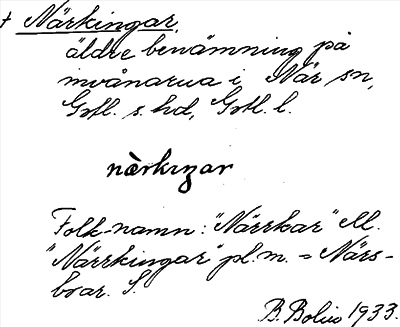 † Närkingar,
äldre benämning på
invånarna i När sn,
Gotl. s. hd, Gotl. l.
nærkiŋar
Folk-namn: "Närrkar" ell.
"Närrkingar" pl. m. = Närs-
boar. S.
B. Bolin 1933.